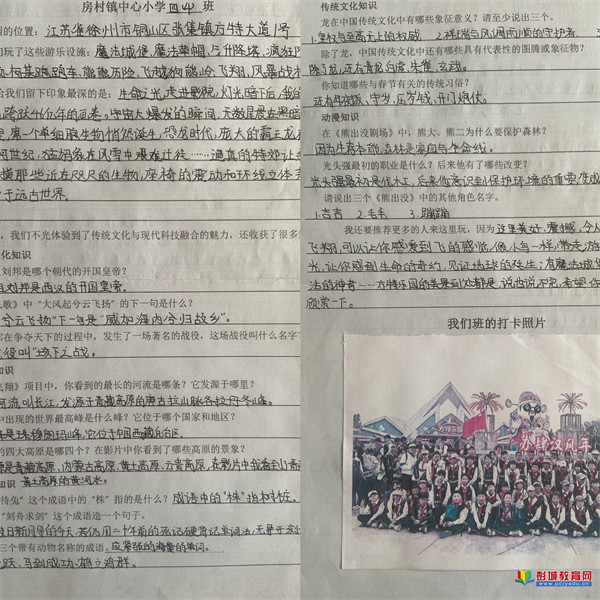 房村镇中心小学四(4)班
的位置:江苏省徐州市铜山区张集镇方特大道1号
玩了这些游乐设施:魔法城堡、魔法草帽、
熊熊历险、飞越
给我们留下印象最深的是:生命之光
跨越4亿年的画卷。宇宙大爆发的瞬间,
第一个单细胞生物悄然诞生,恐龙时代,庞大的霸王龙
河世纪,猛犸象在风雪中艰难迁徙……逼真的特效让
那些近在咫尺的生物,座椅的震动和环绕立体
于远古世界。
,我们不光体验到了传统文化与现代科技融合的魅力,还收获了很多
化知识
刘邦是哪个朝代的开国皇帝?
刘邦是西汉的开国皇帝。
歌》中“大风起兮云飞扬”的下一句是什么?
兮云飞扬”下一句是“威加海内兮归故乡”。
在争夺天下的过程中,发生了一场著名的战役,这场战役叫什么名字?
役叫“垓下之战。
翔》项目中,你看到的最长的河流是哪条?它发源于哪里?
河流叫长江,发源于青藏高原的唐古拉山脉各拉丹冬山峰。
中出现的世界最高峰是什么峰?它位于哪个国家和地区?
是珠穆朗玛峰,它位于中国西藏自治区。
的四大高原是哪四个?在影片中你看到了哪些高原的景象?
是青藏高原,内蒙古高原,黄土高原,云贵高原,在影片中我看到了青
知识 黄土高原的黄河水。
待兔”这个成语中的“株”指的是什么?成语中的“株”指树桩。
“刻舟求剑”这个成语造一个句子。
日新月异的今天,若仍用二十年前的
三个带有动物名称的成语。
跃、马到成功、鹤立鸡群。
传统文化知识
龙在中国传统文化中有哪些象征意义?请至少说出三个。
1.皇权与至高无上的权威 2.祥瑞与风调雨顺的守护者
除了龙,中国传统文化中还有哪些具有代表性的图腾或象征物?
除了龙,还有青鸾,白虎,朱雀,玄武。
你知道哪些与春节有关的传统习俗?
还有年夜饭,守岁,压岁钱,开门炮仗。
动漫知识
在《熊出没剧场》中,熊大、熊二为什么要保护森林?
因为生存本能,森林是家园与生命线。
光头强最初的职业是什么?后来他有了哪些改变?
光头强最初是伐木工,后来他意识到保护环境的重要,变成
请说出三个《熊出没》中的其他角色名字。
1.吉吉 2.毛毛 3.蹦蹦
我还要推荐更多的人来这里玩,因为这里美好,震撼,令人
飞翔,可以让你感受到飞的感觉,像小鸟一样
光,让你感到生命的奇妙,见证地球的发生;有魔法城堡
法的神奇……方特乐园的美景到处都是,说也说不完,希望你
欣赏一下。
我们班的打卡照片
彭城教育网
www.pcjyedu.cn